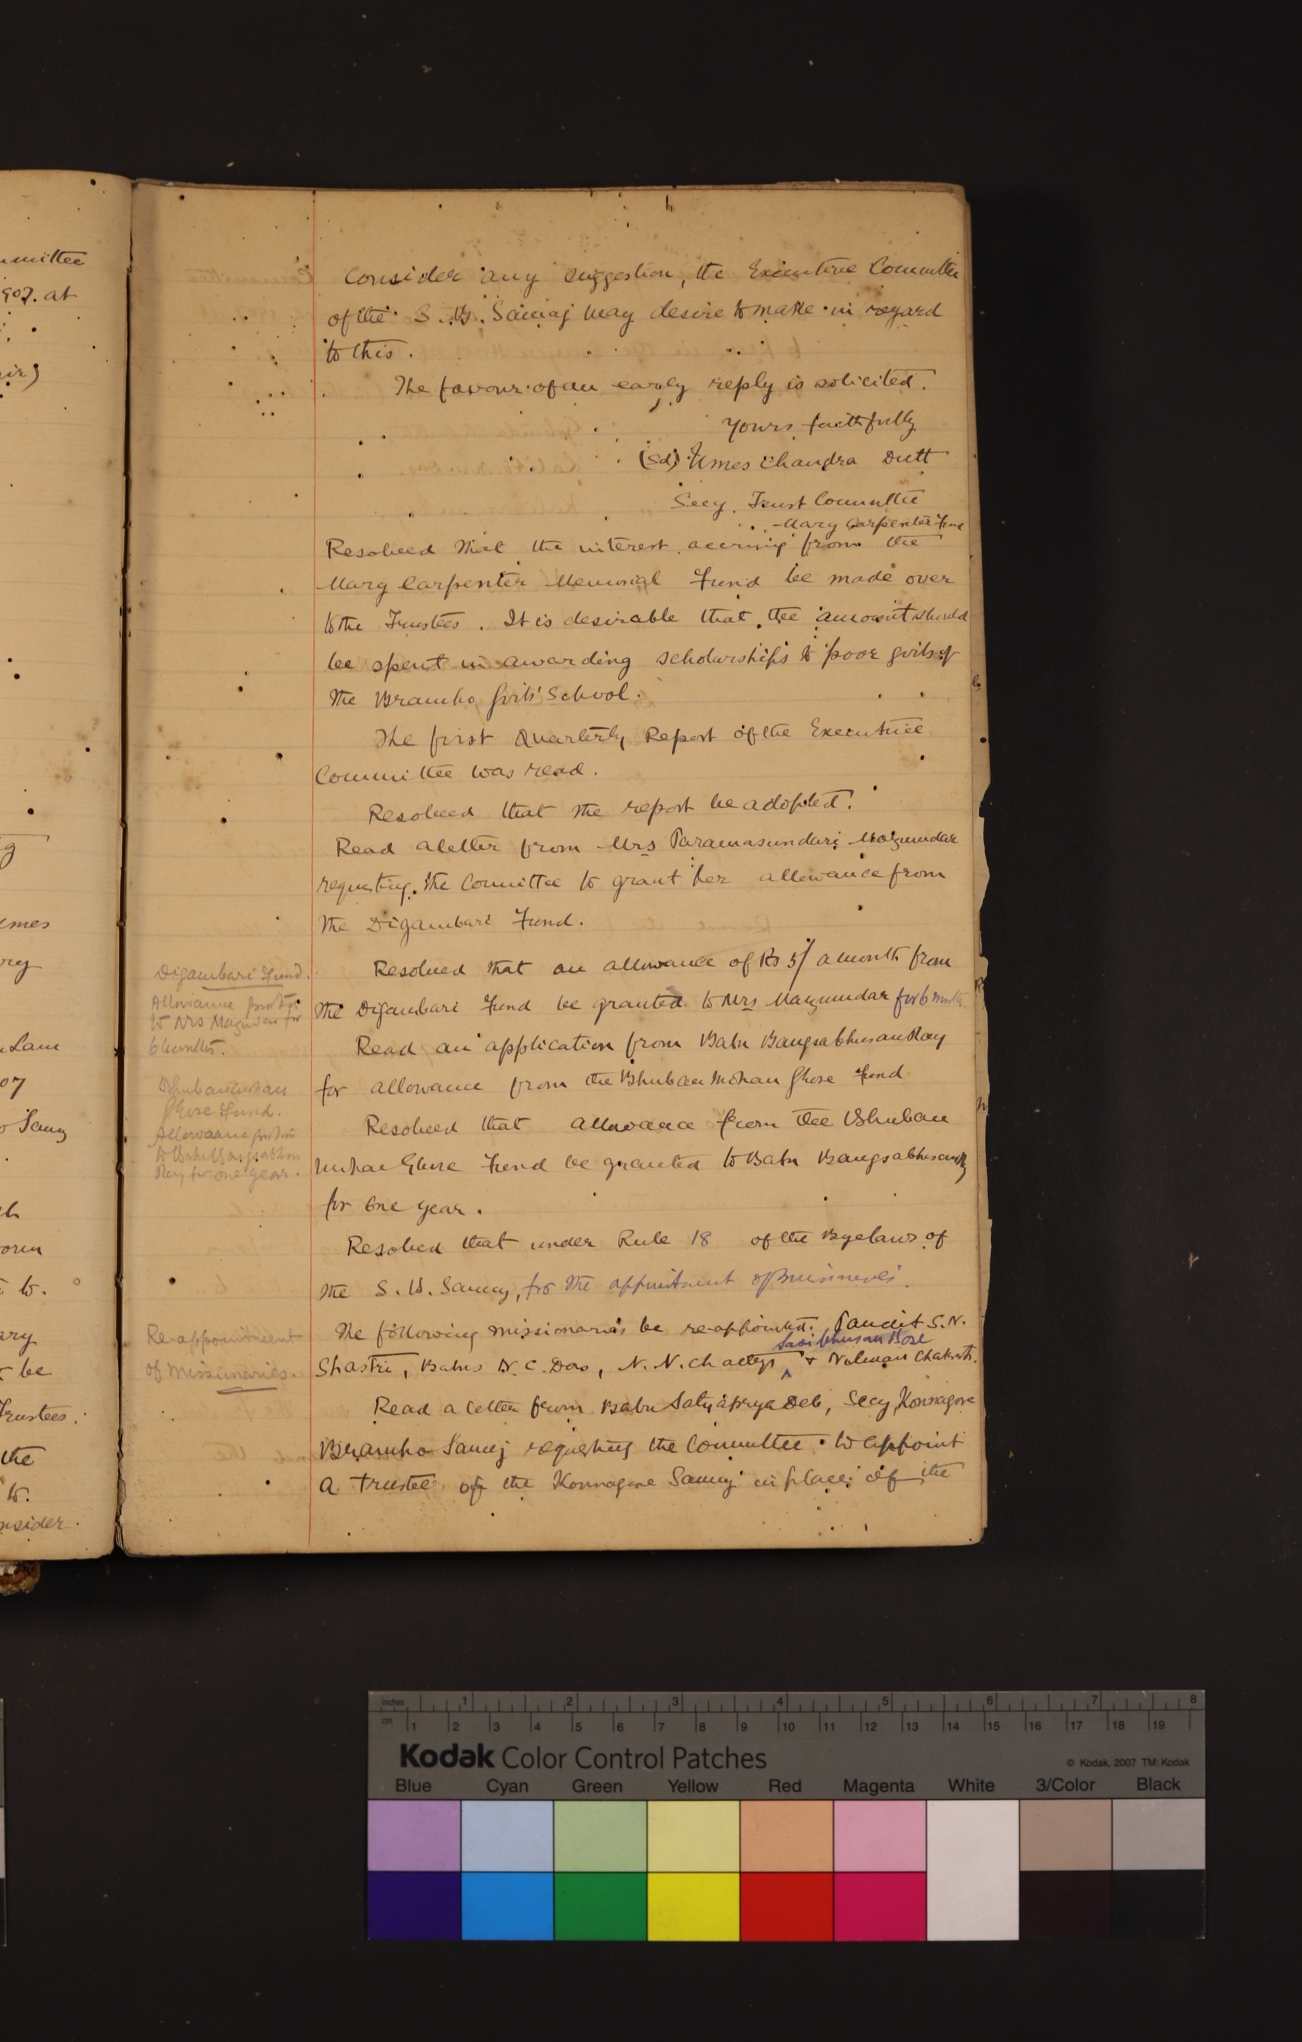 mmittee
1907. at
air)
g
emes
ory
Lam
07
Samj
h
oorn
t to.
ary
t be
Trustees.
the
to.
nsider.
Consider any suggestion, the Executive Committee
of the S. B. Samaj may desire to make in regard
to this.
The favour of an early reply is solicited.
Yours faithfully
(Sd) Umes Chandra Dutt
Secy. Trust Committee
Mary Carpenter Fund
Resolved that the interest accruing from the
Mary Carpenter Memorial Fund be made over
to the Trustees. It is desirable that the amount should
be spent in awarding scholarships to poor girls of
the Bramho Girls' School.
The first Quarterly Report of the Executive
Committee was read.
Resolved that the report be adopted.
Read a letter from Mrs Paramasundari Mazumdar
requesting the Committee to grant her allowance from
the Digambari Fund.
Digambari Fund.
Allowance granted
to Mrs Mazumdar for
6 months.
Resolved that an allowance of Rs 5/ a month from
the Digambari Fund be granted to Mrs Mazumdar for 6 months
Read an application from Babu Bangsabhusan Ray
for allowance from the Bhuban Mohan Ghose Fund
Bhubanmohan
Ghose Fund.
Allowance granted
to Babu Bangsabhusan
Ray for one year.
Resolved that allowance from the Bhuban
Mohan Ghose Fund be granted to Babu Bangsabhusan Ray
for one year.
Resolved that under Rule 18 of the Byelaws of
the S. B. Samaj, for the appointment of Missionaries.
Re-appointment
of Missionaries.
The following missionaries be re-appointed. Pandit S. N.
Sasibhusan Bose
Shastri, Babus B. C. Das, N. N. Chatterji, & Nalinan Chakrabti.
Read a letter from Babu Satyapriya Deb, Secy, Konnagore
Bramho Samaj requesting the Committee to appoint
a trustee of the Konnagore Samaj in place of the
inches 1 2 3 4 5 6 7 8
cm 1 2 3 4 5 6 7 8 9 10 11 12 13 14 15 16 17 18 19
Kodak Color Control Patches
© Kodak, 2007 TM: Kodak
Blue Cyan Green Yellow Red Magenta White 3/Color Black